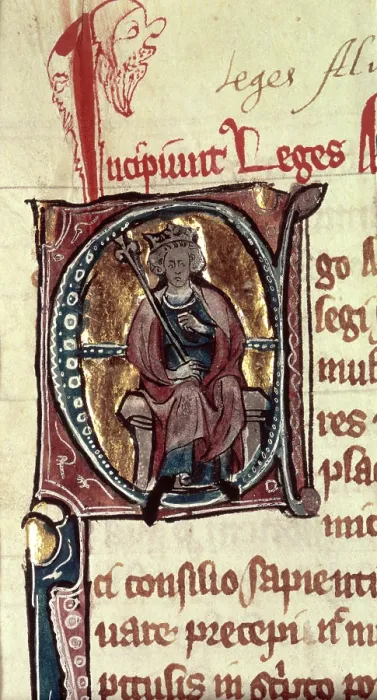 Leges Alu
Incipiunt Leges A
go A
legi
mul
res
plac
mic
ci consilio sapienti
uare precepi
in